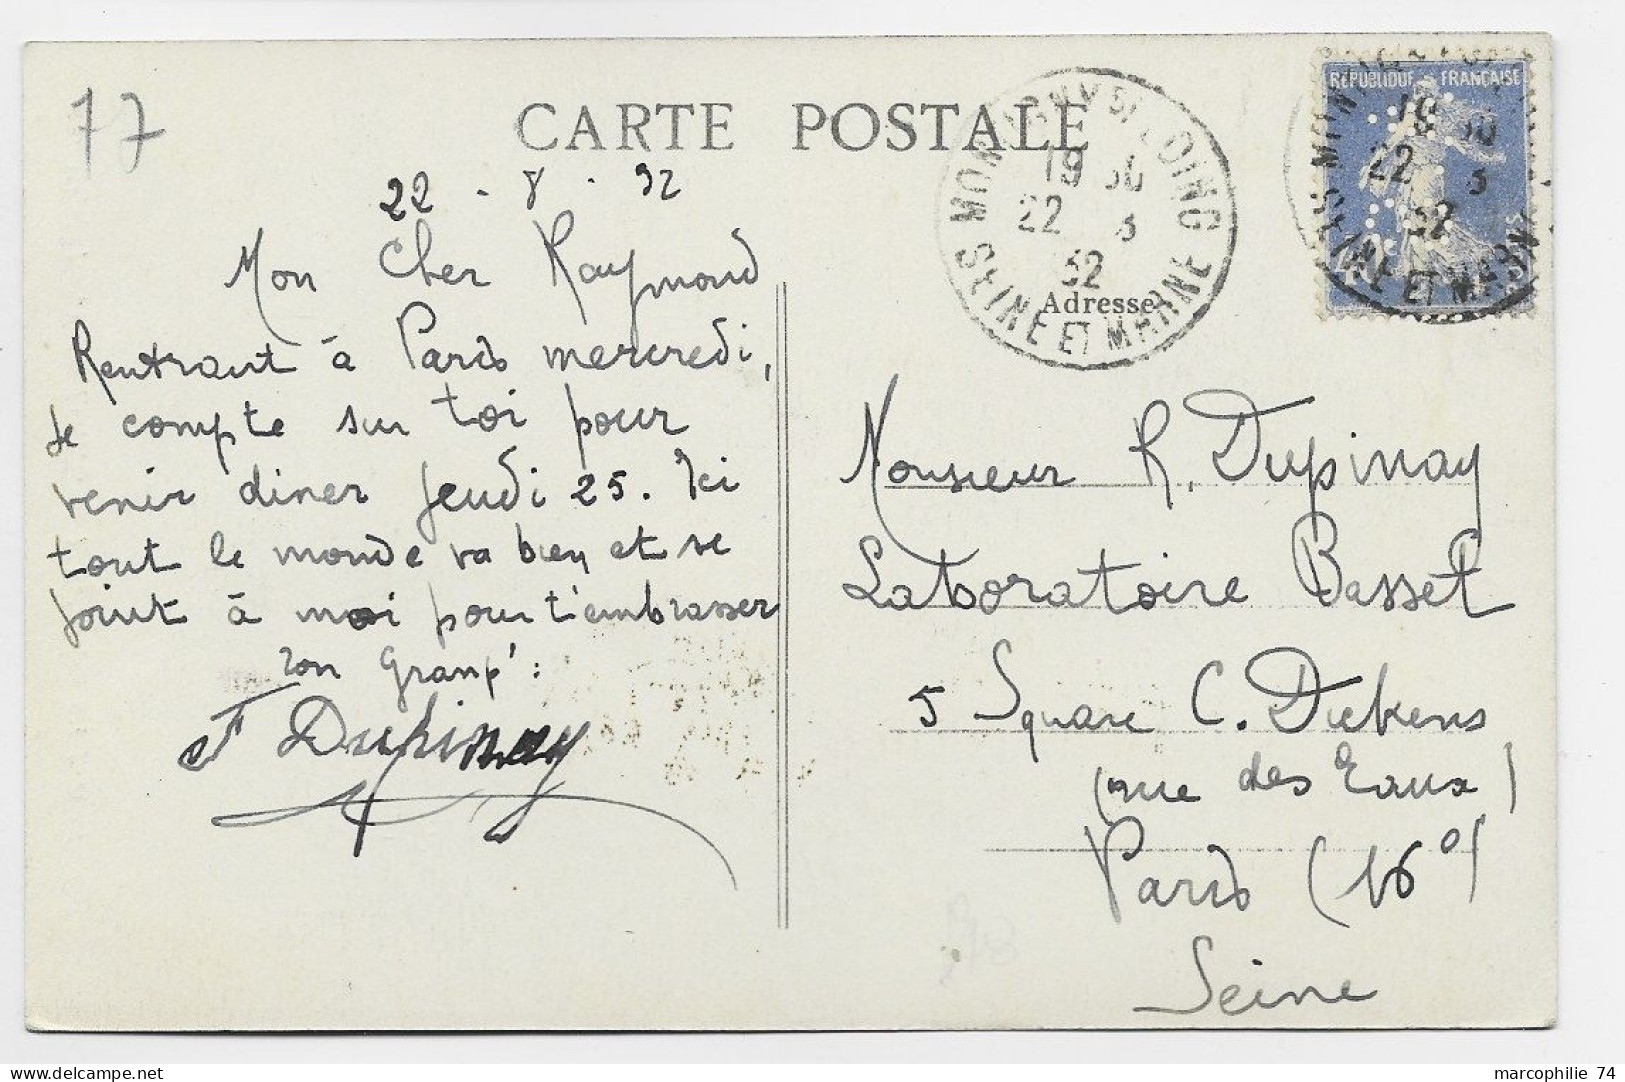 77
CARTE POSTALE
22 - 8 - 32
Mon Cher Raymond
Rentrant à Paris mercredi,
Je compte sur toi pour
venir diner Jeudi 25. Ici
tout le monde va bien et se
joint à moi pour t'embrasser
Ton Granp':
F Dupinay
SEINE ET MARNE
19 30
22 8
32
Adresse
REPUBLIQUE FRANÇAISE
19 30
22 8
32
SEINE ET MARNE
Monsieur R. Dupinay
Laboratoire Basset
5 Square C. Dickens
(rue des Eaux)
Paris (16°)
Seine
marcophilie 74